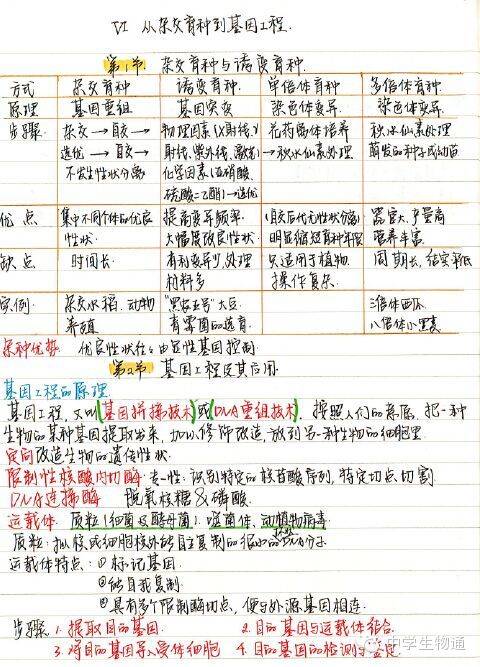 VI 从杂交育种到基因工程.
第1节 杂交育种与诱变育种.
方式 杂交育种 诱变育种. 单倍体育种 多倍体育种.
原理 基因重组 基因突变 染色体变异. 染色体变异.
步骤. 杂交→自交→ 物理因素(X射线、γ 花药离体培养 秋水仙素处理
选优→自交→ 射线、紫外线、激光) →秋水仙素处理 萌发的种子或幼苗
不发生性状分离 化学因素(亚硝酸、
硫酸二乙酯)→选优
优点 集中不同个体的优良 提高变异频率. (自交后代无性状分离) 器官大、产量高
性状. 大幅度改良性状 明显缩短育种年限 营养丰富.
缺点 时间长. 有利变异少,处理 只适用于植物. 周期长,结实率低
材料多 操作复杂.
实例. 杂交水稻、动物 "黑农五号"大豆. 三倍体西瓜.
养殖 青霉菌的选育. 八倍体小黑麦
杂种优势. 优良性状往往由显性基因控制.
第2节 基因工程及其应用.
基因工程的原理
基因工程,又叫(基因拼接技术)或(DNA重组技术). 按照人们的意愿,把一种
生物的某种基因提取出来,加以修饰改造,放到另一种生物的细胞里.
定向改造生物的遗传性状.
限制性核酸内切酶: 专一性: 识别特定的核苷酸序列,特定切点切割.
DNA连接酶 脱氧核糖&磷酸.
运载体. 质粒(细菌及酵母菌). 噬菌体,动植物病毒
质粒: 拟核或细胞核外能自主复制的很小的环状DNA分子.
运载体特点: ①标记基因.
②能自我复制
③具有多个限制酶切点,便与外源基因相连.
步骤. 1. 提取目的基因. 2. 目的基因与运载体结合.
3. 将目的基因导入受体细胞 4. 目的基因的检测与鉴定
中学生物通